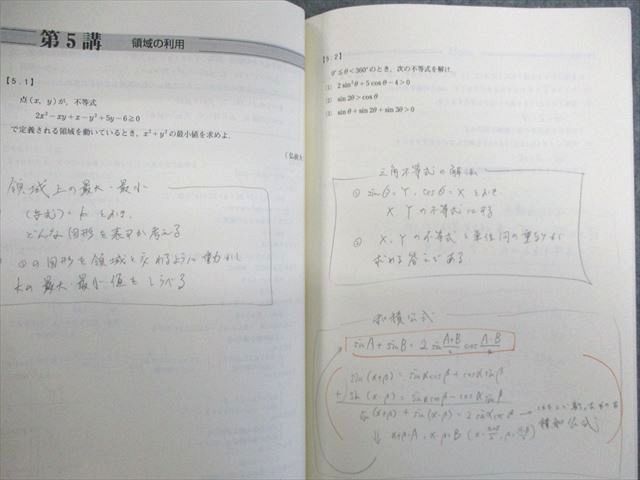 第5講 領域の利用
【5.1】
点(x, y)が, 不等式
2x²-xy+x-y²+5y-6≧0
で定義される領域を動いているとき, x²+y²の最小値を求めよ.
領域上の最大・最小
(与式)=k とおき,
どんな図形を表すか考える
の図形を領域と交わるように動かし
kの最大・最小値をしらべる
【5.2】
0°≦θ<360°のとき, 次の不等式を解け.
(1) 2 sin²θ+5 cosθ-4>0
(2) sin2θ>cosθ
(3) sinθ+sin2θ+sin3θ>0
三角不等式の解法
① sinθ=Y, cosθ=X とおき,
X Yの不等式にする
② X, Yの不等式と単位円の重なりが
求める答えである
和積公式
sinA+sinB=2 sin A+B/2 cos A-B/2
sin(α+β)=sinαcosβ+cosαsinβ
+) sin(α-β)=sinαcosβ-cosαsinβ
sin(α+β)+sin(α-β)=2 sinαcosβ →
積和公式
↓ α+β=A, α-β=B (α=A+B/2, β=A-B/2)